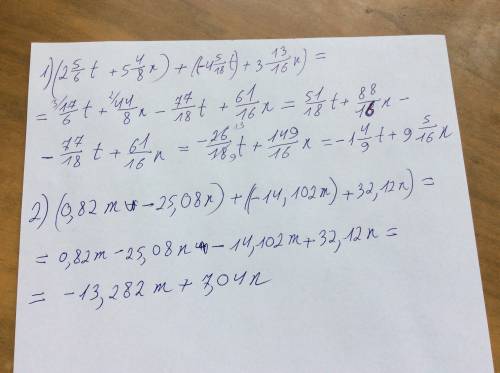 1) (2 5/6 t + 5 4/8 n) + (-4 5/18 t) + 3 13/16 n) =
= ³⁾17/6 t + ²⁾44/8 n - 77/18 t + 61/16 n = 51/18 t + 88/16 n -
- 77/18 t + 61/16 n = -26 13/18 9 t + 149/16 n = -1 4/9 t + 9 5/16 n
2) (0,82 m - 25,08 n) + (-14,102 m) + 32,12 n) =
= 0,82 m - 25,08 n - 14,102 m + 32,12 n =
= -13,282 m + 7,04 n